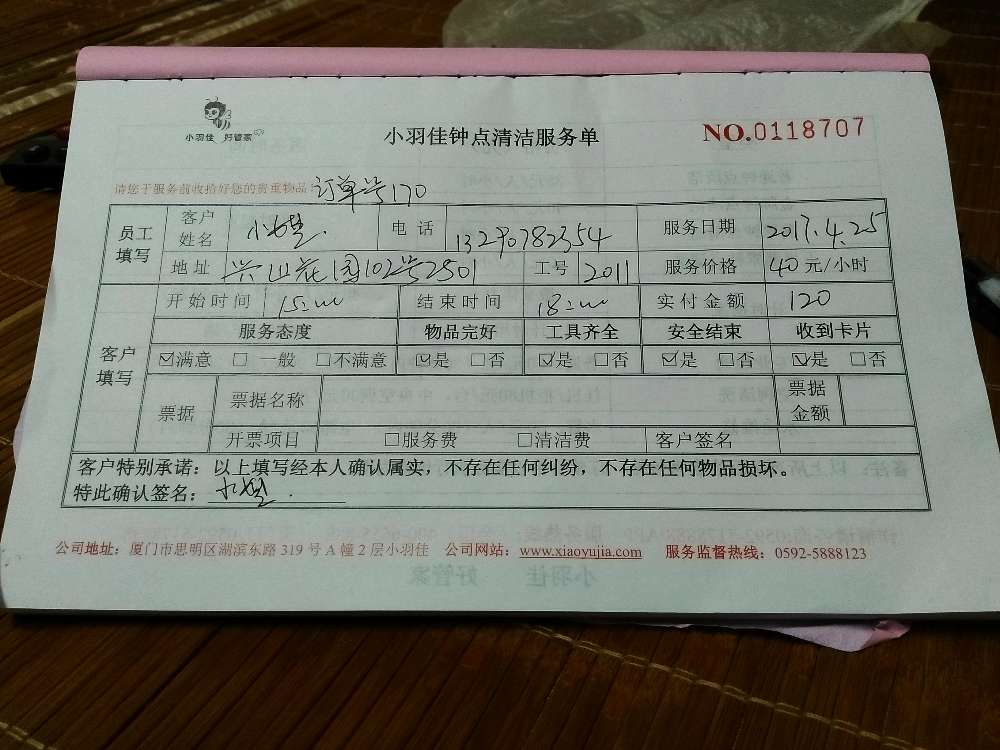 小羽佳 好管家
小羽佳钟点清洁服务单
NO.0118707
请您于服务前收拾好您的贵重物品! 订单号170
员工填写 客户姓名 电话 13290782354 服务日期 2017.4.25
地址 兴山花园102号2501 工号 2011 服务价格 40元/小时
客户填写 开始时间 15:00 结束时间 18:00 实付金额 120
服务态度 物品完好 工具齐全 安全结束 收到卡片
☑满意 □一般 □不满意 ☑是 □否 ☑是 □否 ☑是 □否 ☑是 □否
票据 票据名称 票据金额
开票项目 □服务费 □清洁费 客户签名
客户特别承诺：以上填写经本人确认属实，不存在任何纠纷，不存在任何物品损坏。
特此确认签名：
公司地址：厦门市思明区湖滨东路 319 号 A 幢 2 层小羽佳 公司网站：www.xiaoyujia.com 服务监督热线：0592-5888123